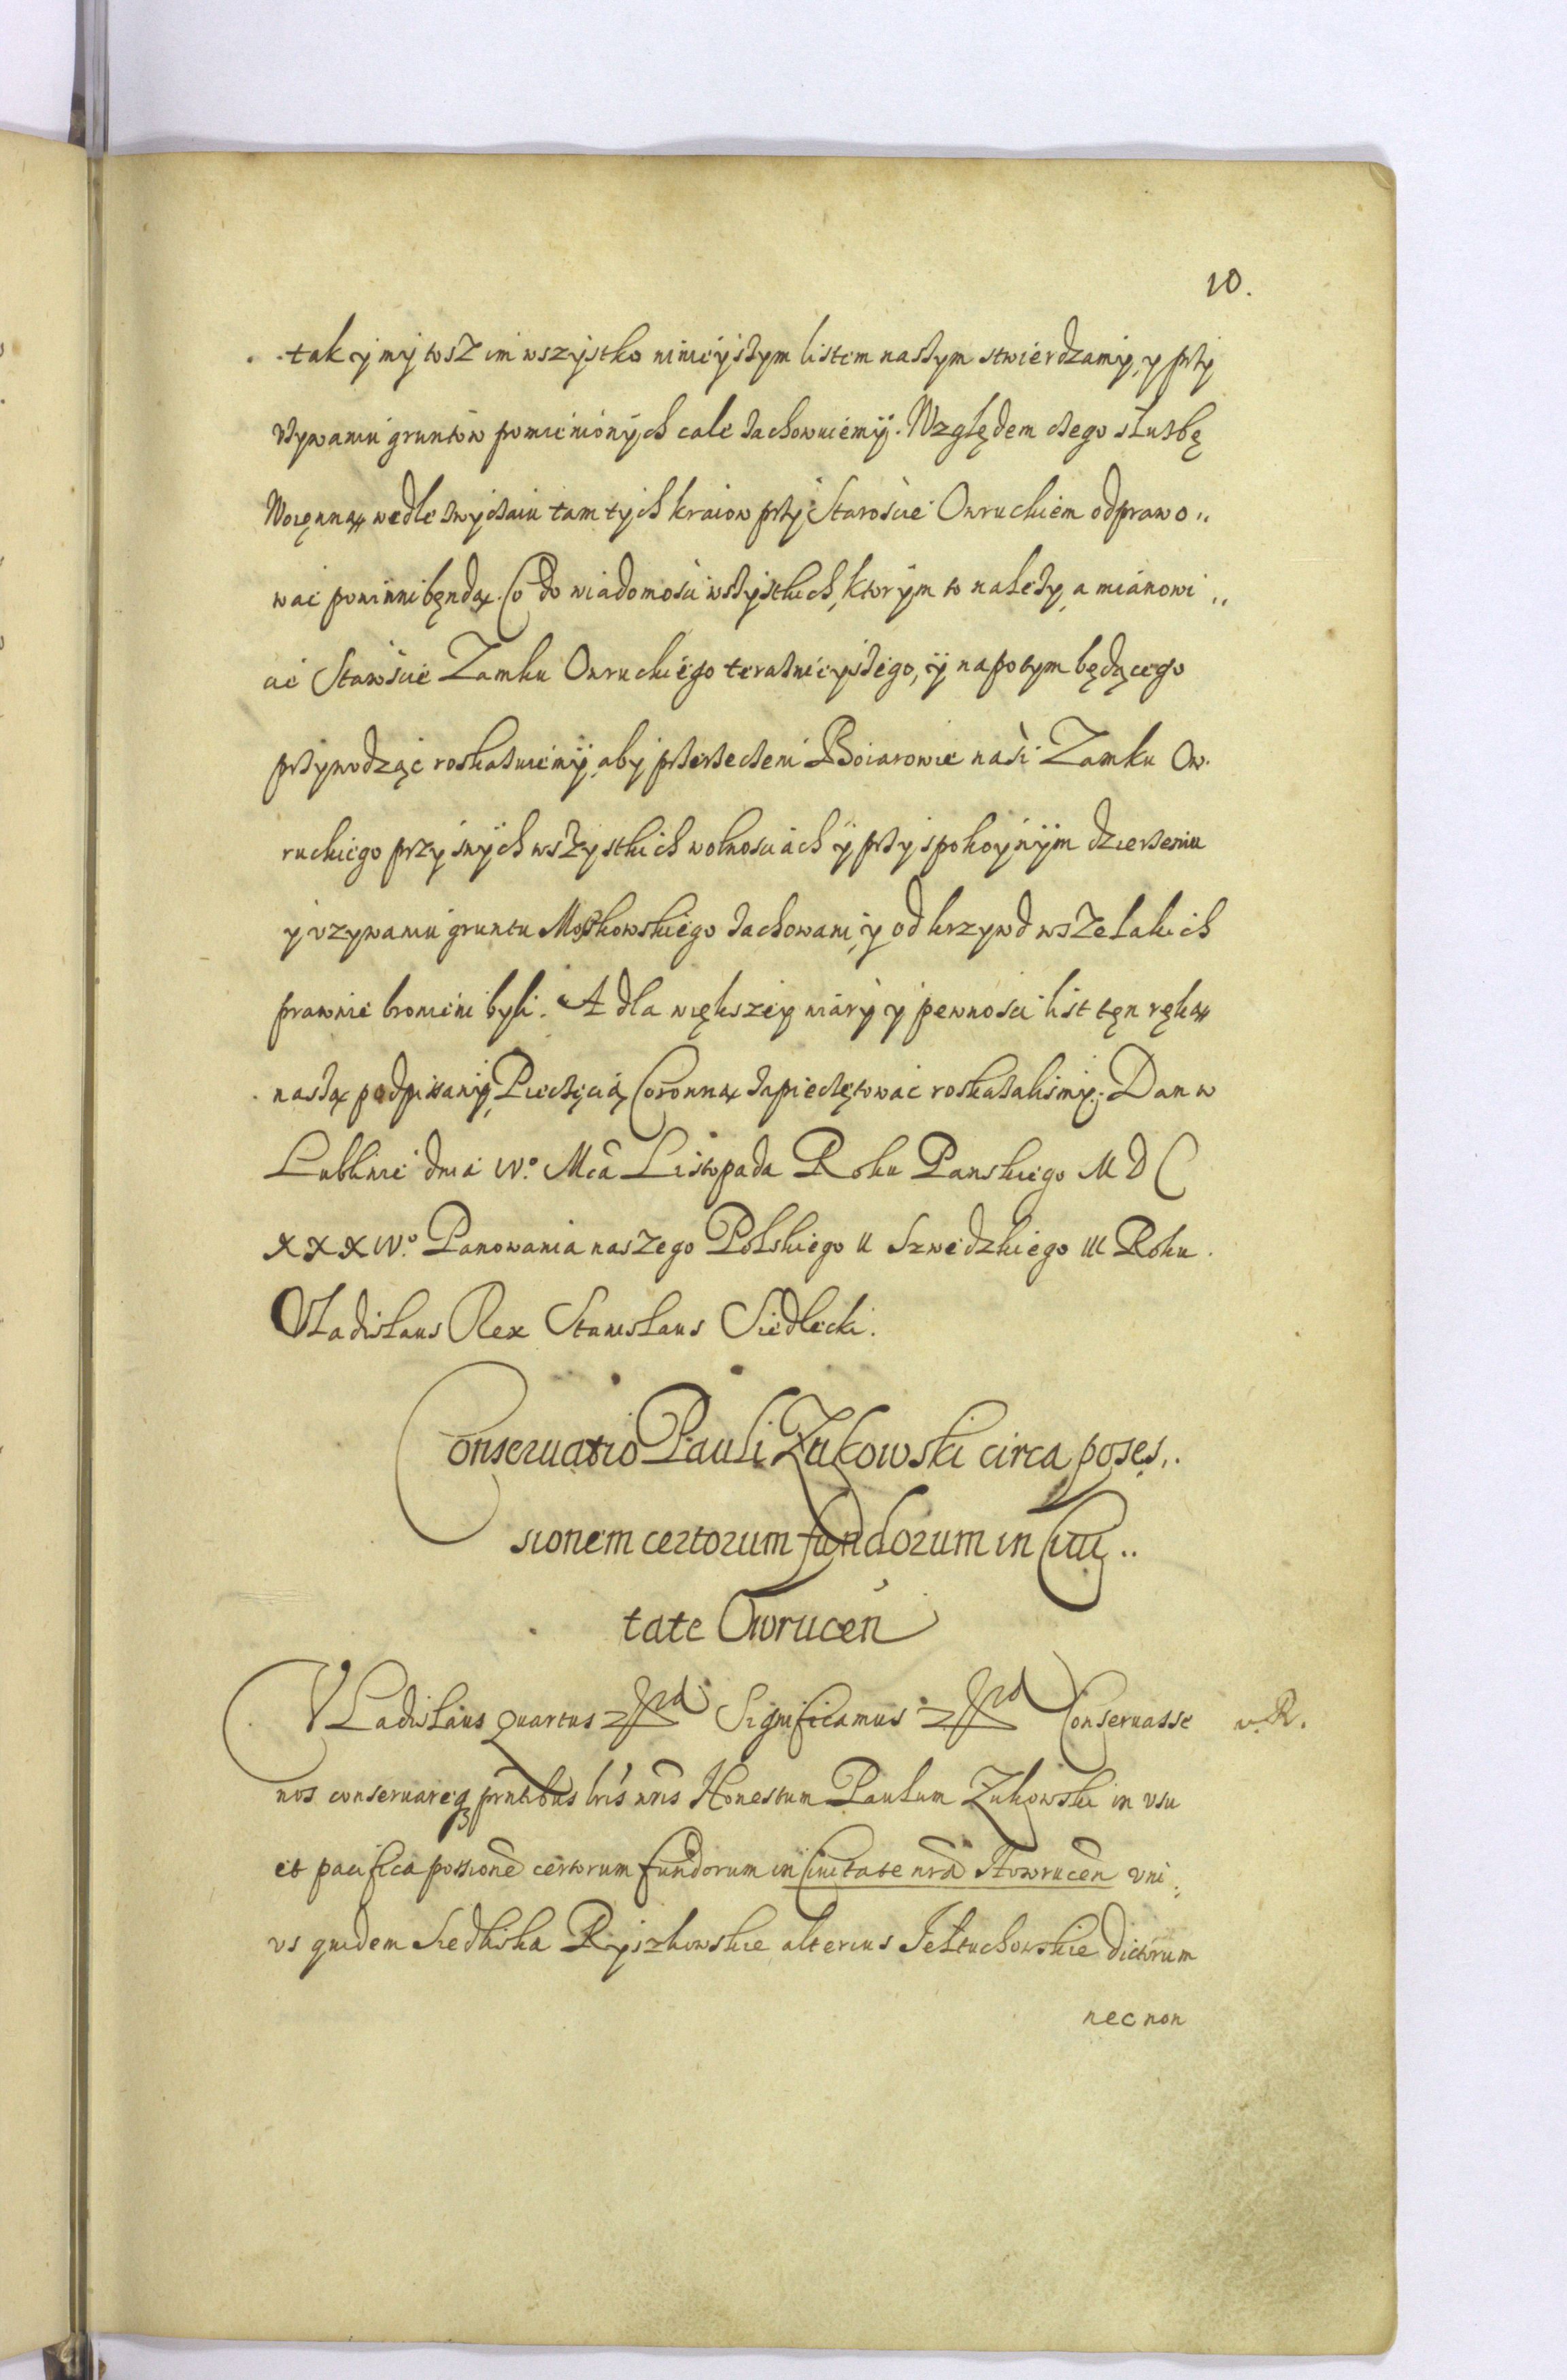 10.
tak y my tosz im wszystko ninieyszym listem naszym stwierdzamy, y przy
vżywaniu gruntow pomienionych cale zachowuiemy. Względem czego służbę
Woięnną wedle zwyczaiu tamtych kraiow przy Starosćie Owruckiem odprawo„
wać powinni bęndą. Co do wiadomośći wszystkich, ktorym to należy, a mianowi„
ćie Starosćie Zamku Owruckiego teraznieyszego, y napotym będącego
przywodząc roskazuiemy, aby przerzeczeni Boiarowie nasi Zamku Ow.
ruckiego przy swych wszystkich wolnosciach y przy spokoynym dzierżeniu
y vzywaniu gruntu Moszkowskiego zachowani, y od krzywd wszelakich
prawnie bronieni byli. A dla większey wiary y pewnośći list tęn ręką
naszą podpisany, Pieczęćią Coronną zapieczętować roskazaliśmy. Dan w
Lublinie dnia IV.º Mcâ Listopada Roku Panskiego M D C
XXXIV.º Panowania naszego Polskiego II Szwedzkiego III Roku.
Vladislaus Rex Stanislaus Siedlecki.
Conseruatio Pauli Zukowski circa poses„
sionem certorum fundorum in Ciui„
tate Owruceń
VLadislaus quartus Significamus Conseruasse v. R.
nos conseruareq pñtibus lris nris Honestum Paulum Zukowski in vsu
et pacifica possione certorum fundorum in Ciuitate nrã Howruceñ vni„
vs quidem Siedliska Ryszkowskie alterius Jełtuchowskie dictorum
nec non